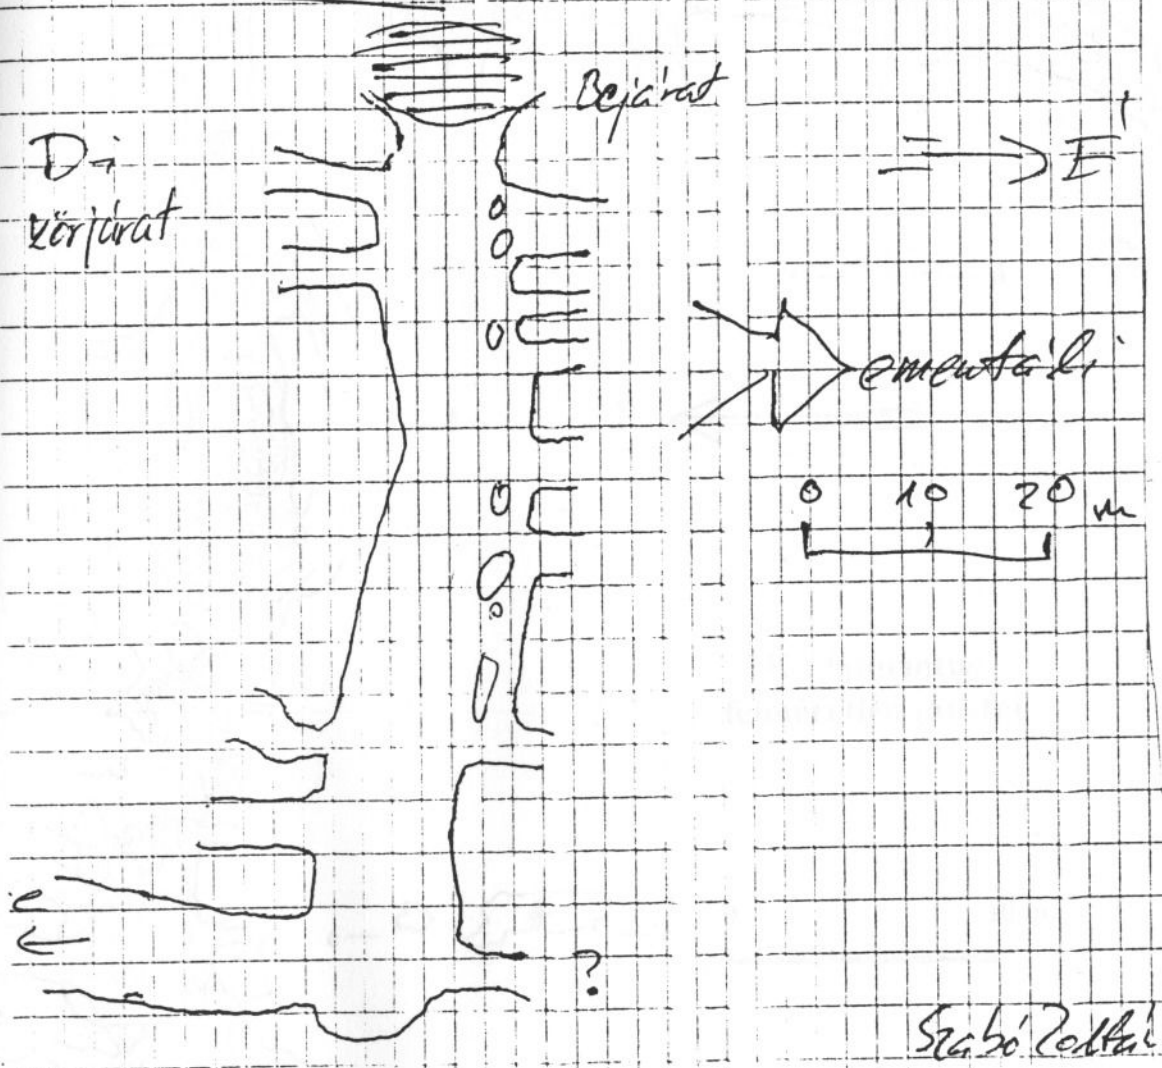 Bejárat
Di
körjárat
É
ementáli
0 10 20 m
e
?
Szabó Zoltán